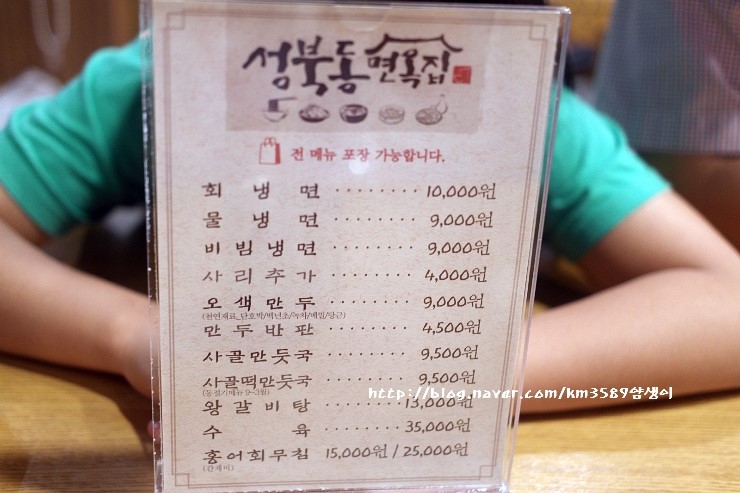 성북동 면옥집
전 메뉴 포장 가능합니다.
회 냉 면 ········ 10,000원
물 냉 면 ········ 9,000원
비 빔 냉 면 ········ 9,000원
사 리 추 가 ········ 4,000원
오 색 만 두 ········ 9,000원
(천연재료_단호박/백년초/녹차/메밀/당근)
만 두 반 판 ········ 4,500원
사골만둣국 ········ 9,500원
사골떡만둣국 ········ 9,500원
(동절기메뉴 9~3월)
http://blog.naver.com/km3589얌생이
왕 갈 비 탕 ········ 13,000원
수 육 ········ 35,000원
홍어회무침 15,000원 / 25,000원
(간재미)